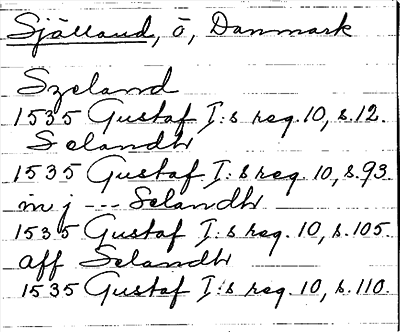 Själland, ö, Danmark
Szeland
1535 Gustaf I:s reg. 10, s. 12.
Selandh
1535 Gustaf I:s reg. 10, s. 93.
in j --- Selandh
1535 Gustaf I:s reg. 10, s. 105.
aff Selandh
1535 Gustaf I:s reg. 10, s. 110.